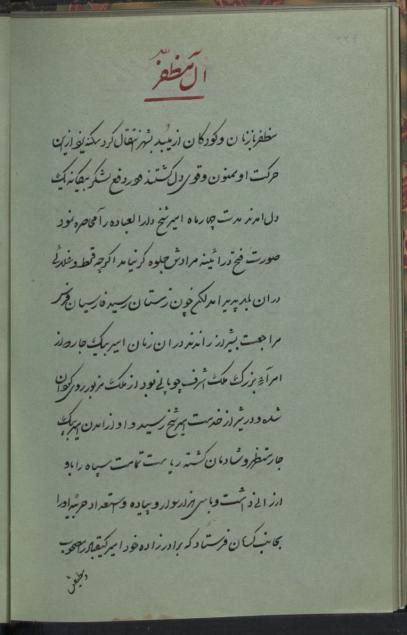 آل مظفر
مظفر با زنان و کودکان از میبد بشهر انتقال کرد سکنه یزد از این
حرکت او ممنون و قوی دل گشتند و در دفع لشکر بیگانه یک
دل آمدند مدت چهار ماه امیر شیخ دارالعباده را محاصره نمود
صورت فتح در آئینه مرادش جلوه گر نیامد اگرچه قحط و غلائی
در آن بلد پدیر آمد لکن چون زمستان رسید فارسیان
مراجعت بشیراز راندند در آن زمان امیر بیک جاردار
امرآء بزرگ ملک اشرف چوپانی بود از ملک مزبور روی
شده و در شیراز خدمت امیر شیخ رسید و او از آمدن امیر بیک
جار مستظهر و شادمان گشته ریاست تمامت سپاه را باو
ارزانی داشت و با سی هزار سوار و پیاده و استعداد حرب او را
بجانب کرمان فرستاد که برادرزاده خود امیر کیقباد